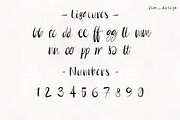 - Ligatures -
bb cc dd ee ff gg ll mm
nn oo pp rr ss tt
- Numbers -
1 2 3 4 5 6 7 8 9 0